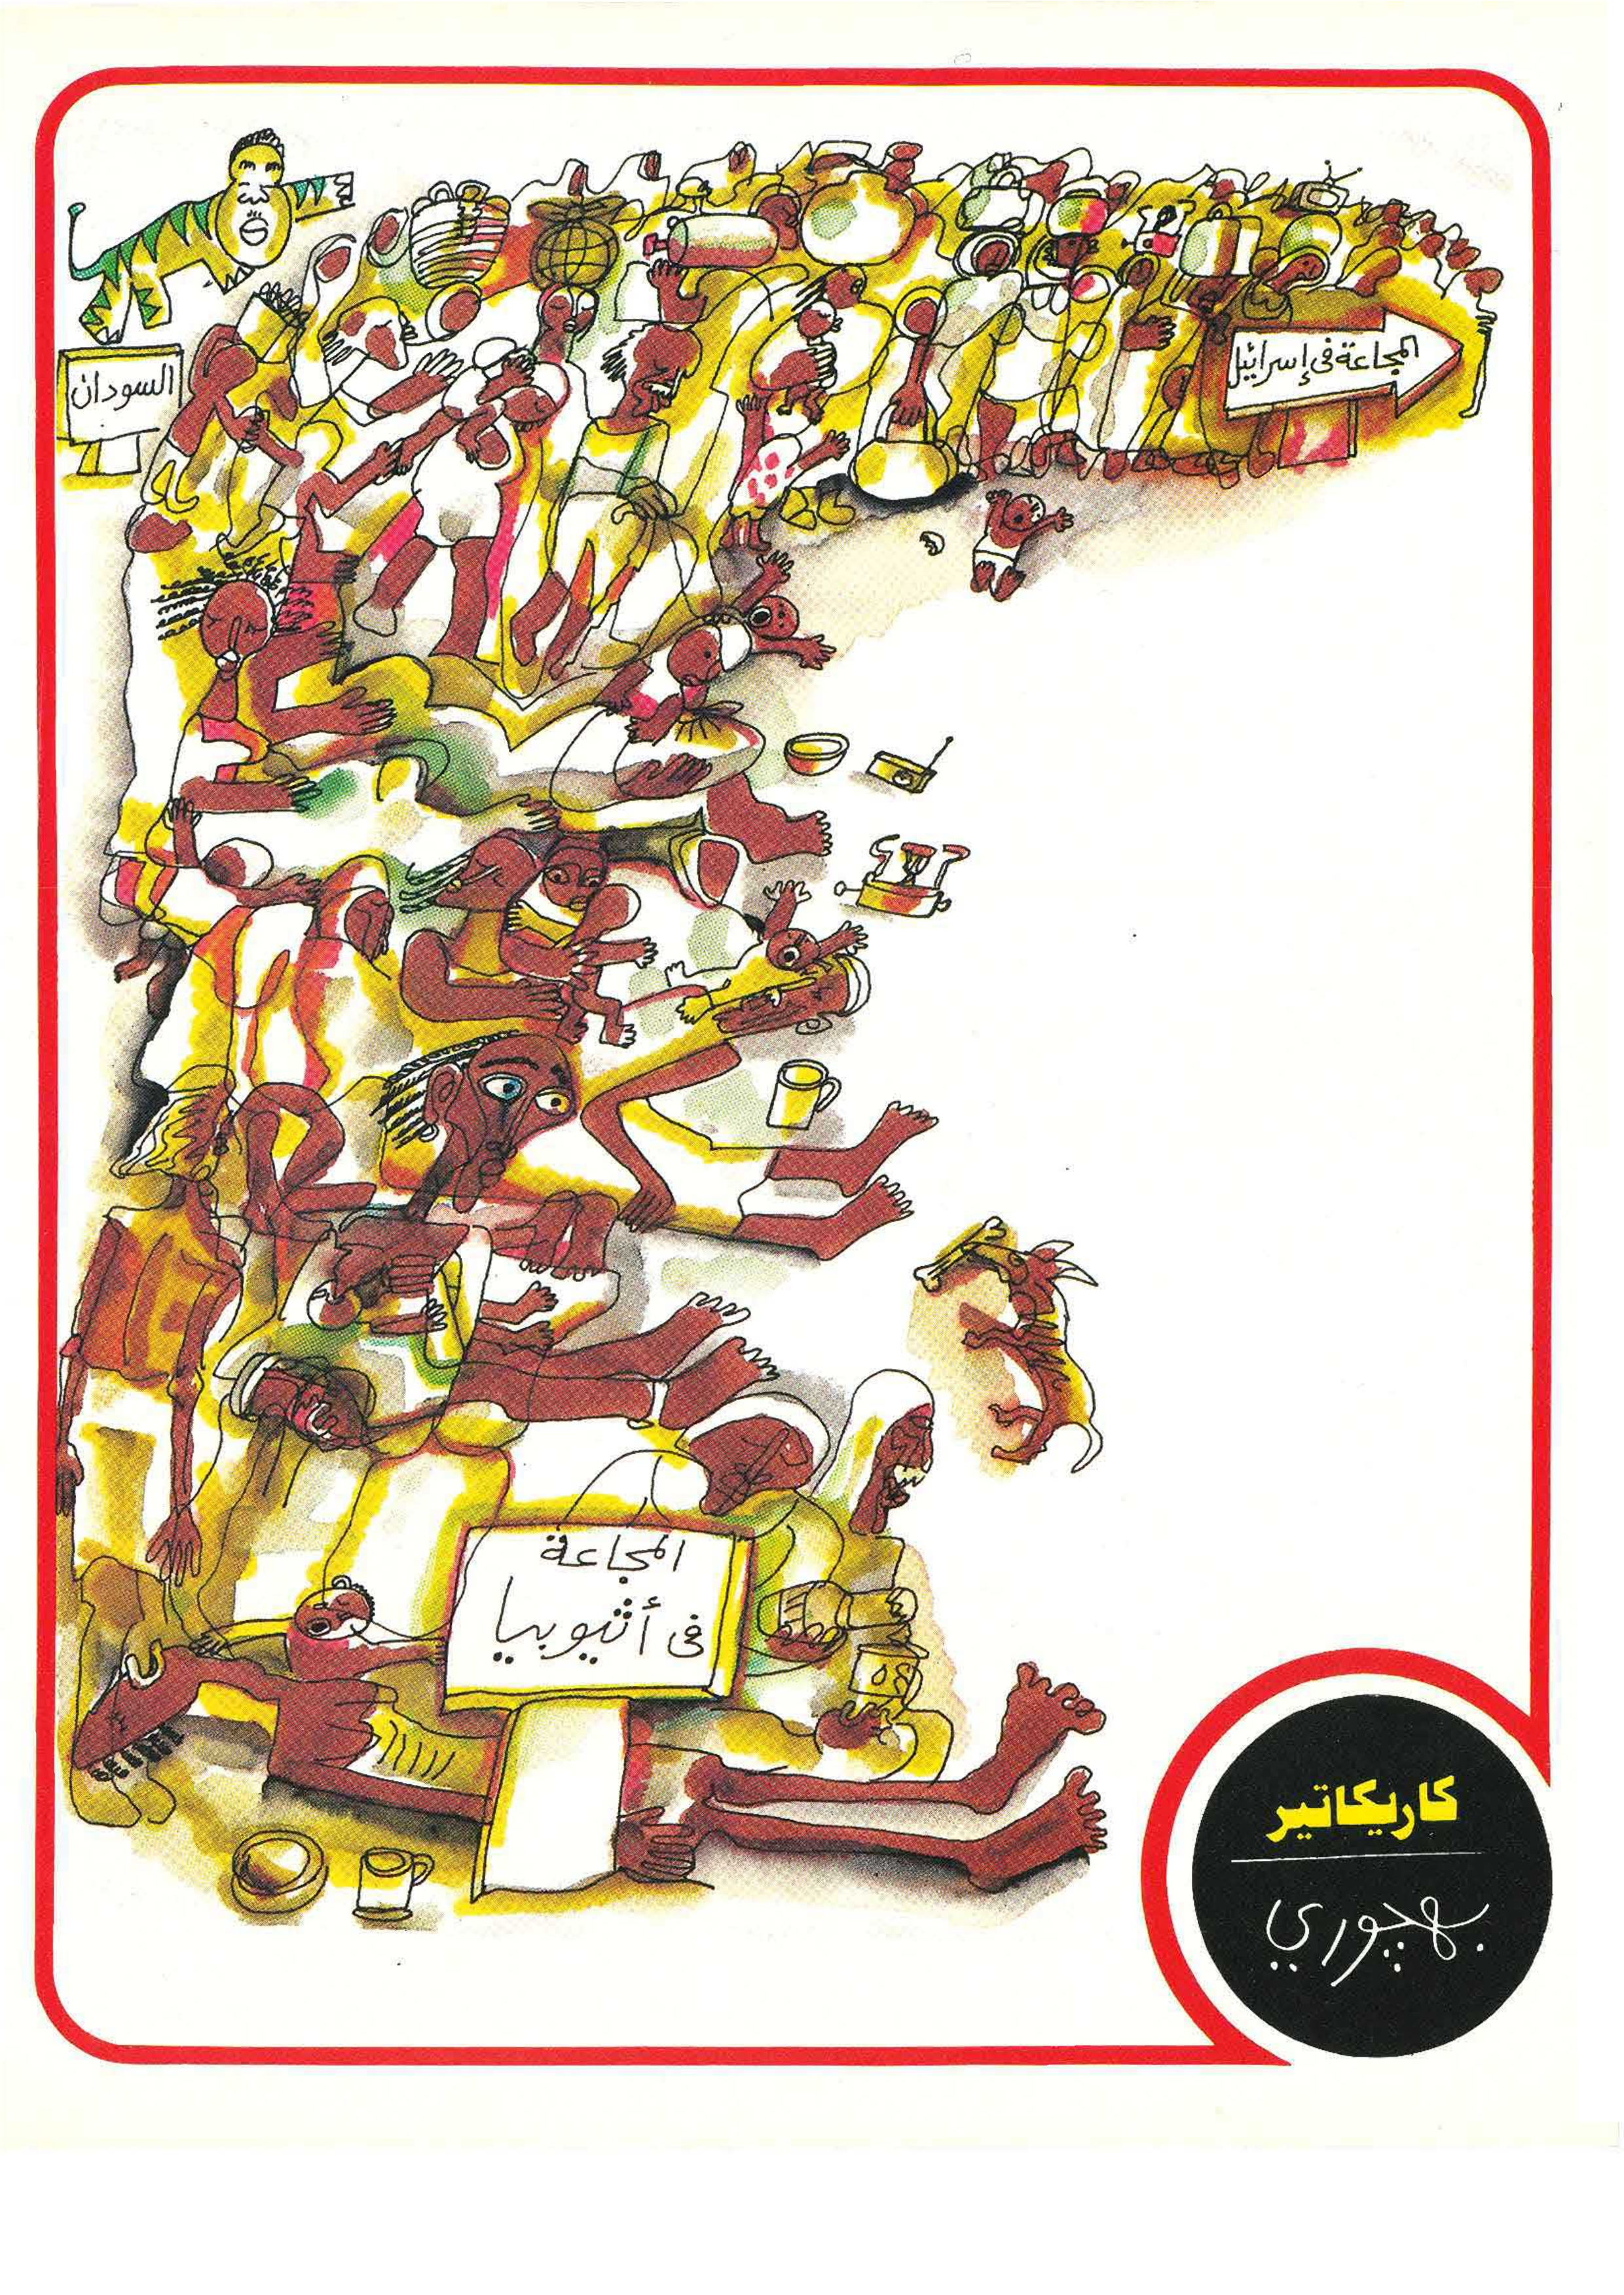 السودان
المجاعة في إسرائيل
المجاعة
في أثيوبيا
كاريكاتير
بهچوري